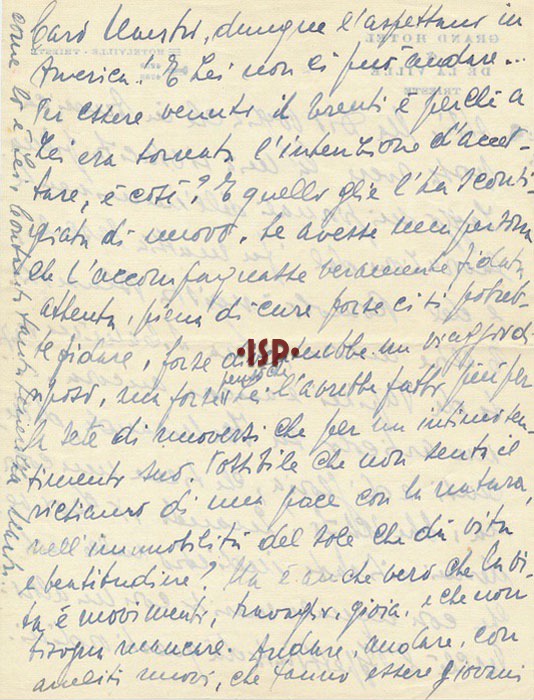 Caro Maestro, dunque l'aspettano in
America! E Lei non ci può andare...
Per essere venuto il Brenti è perchè a
Lei era tornata l'intenzione d'accet-
tare, è così? E quello glie l'ha sconsi-
gliata di nuovo. Se avesse una persona
che l'accompagnasse veramente fidata
attenta, piena di cure forse ci si potreb-
be fidare, forse un viaggio di
riposo, ma forse l'avrebbe fatto più per
la sete di muoversi che per un intimo sen-
timento suo. Possibile che non senta il
richiamo di una pace con la natura,
nell'immobilità del sole che dà vita
e beatitudine? Ma è anche vero che la vi-
ta è movimento, travaglio, gioia, e che non
bisogna mancare. Andare, andare, con
aneliti nuovi, che fanno essere giovani
come lo è Lei. tanta tenerezza
GRAND HOTEL
DE LA VILLE
TRIESTE
HOTELVILLE - TRIESTE
ISP